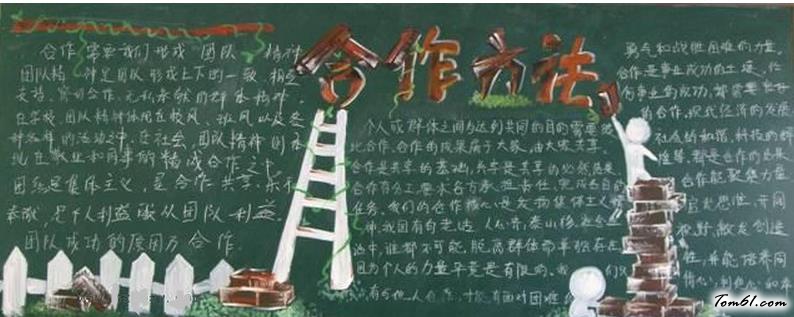 合作方法
合作需要我们形成团队精神
团队精神是团队形成上下的一致、相互
支持、密切合作、无私奉献的群体精神。
在学校、团队精神体现在校风、班风以及
种各样的活动之中，在社会，团队精神则体
现在敬业和同事的精诚合作之中
团结是集体主义，是合作共享、乐于
奉献，是个人利益服从团队利益。
团队成功的原因乃合作。
个人或群体之间为达到共同的目的需要彼
此合作。合作的成果属于大家，由大家共享。
合作是共享的基础，共享是共享的必然结果
合作有分工，要求各方承担责任，完成各自的
任务。我们的合作核心是发扬集体主义精
神，我国有句老话，人心齐，泰山移。在社会生
活中，谁都不可能脱离群体而单独存在
因为个人的力量毕竟是有限的。我们只
有与他人合作，才能有面对困难的
勇气和战胜困难的力量。
合作是事业成功的土壤，任
何事业的成功，都需要良好
的合作，现代经济的发展
社会的和谐，科技的辉
煌等，都是合作的结果
合作能聚集力量
启发思维、开阔
视野，激发创造
性，并能培养同
情心、利他心和奉
Tom61.com